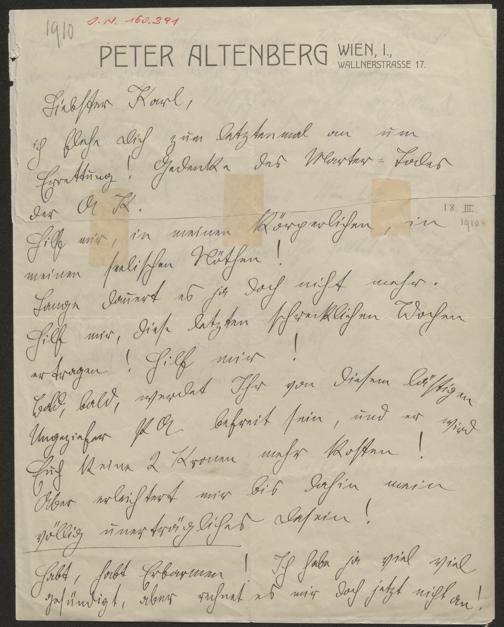 1910
I.N. 160.391
PETER ALTENBERG WIEN, I.,
WALLNERSTRASSE 17.
Liebster Karl,
ich flehe Dich zum letztenmal an um
Errettung! Gedenke des Marter=Todes
der A K.
Hilf mir, in meinen körperlichen, in
18. III.
1910
meinen seelischen Nöthen!
Lange dauert es ja doch nicht mehr.
Hilf mir, diese letzten schrecklichen Wochen
ertragen! Hilf mir!
Bald, bald, werdet Ihr von diesem lästigen
Ungeziefer PA befreit sein, und er wird
Euch keine 2 Kronen mehr kosten!
Aber erleichtert mir bis dahin mein
völlig unerträgliches Dasein!
Habt, habt Erbarmen! Ich habe ja viel viel
gesündigt, aber rechnet es mir doch jetzt nicht an!